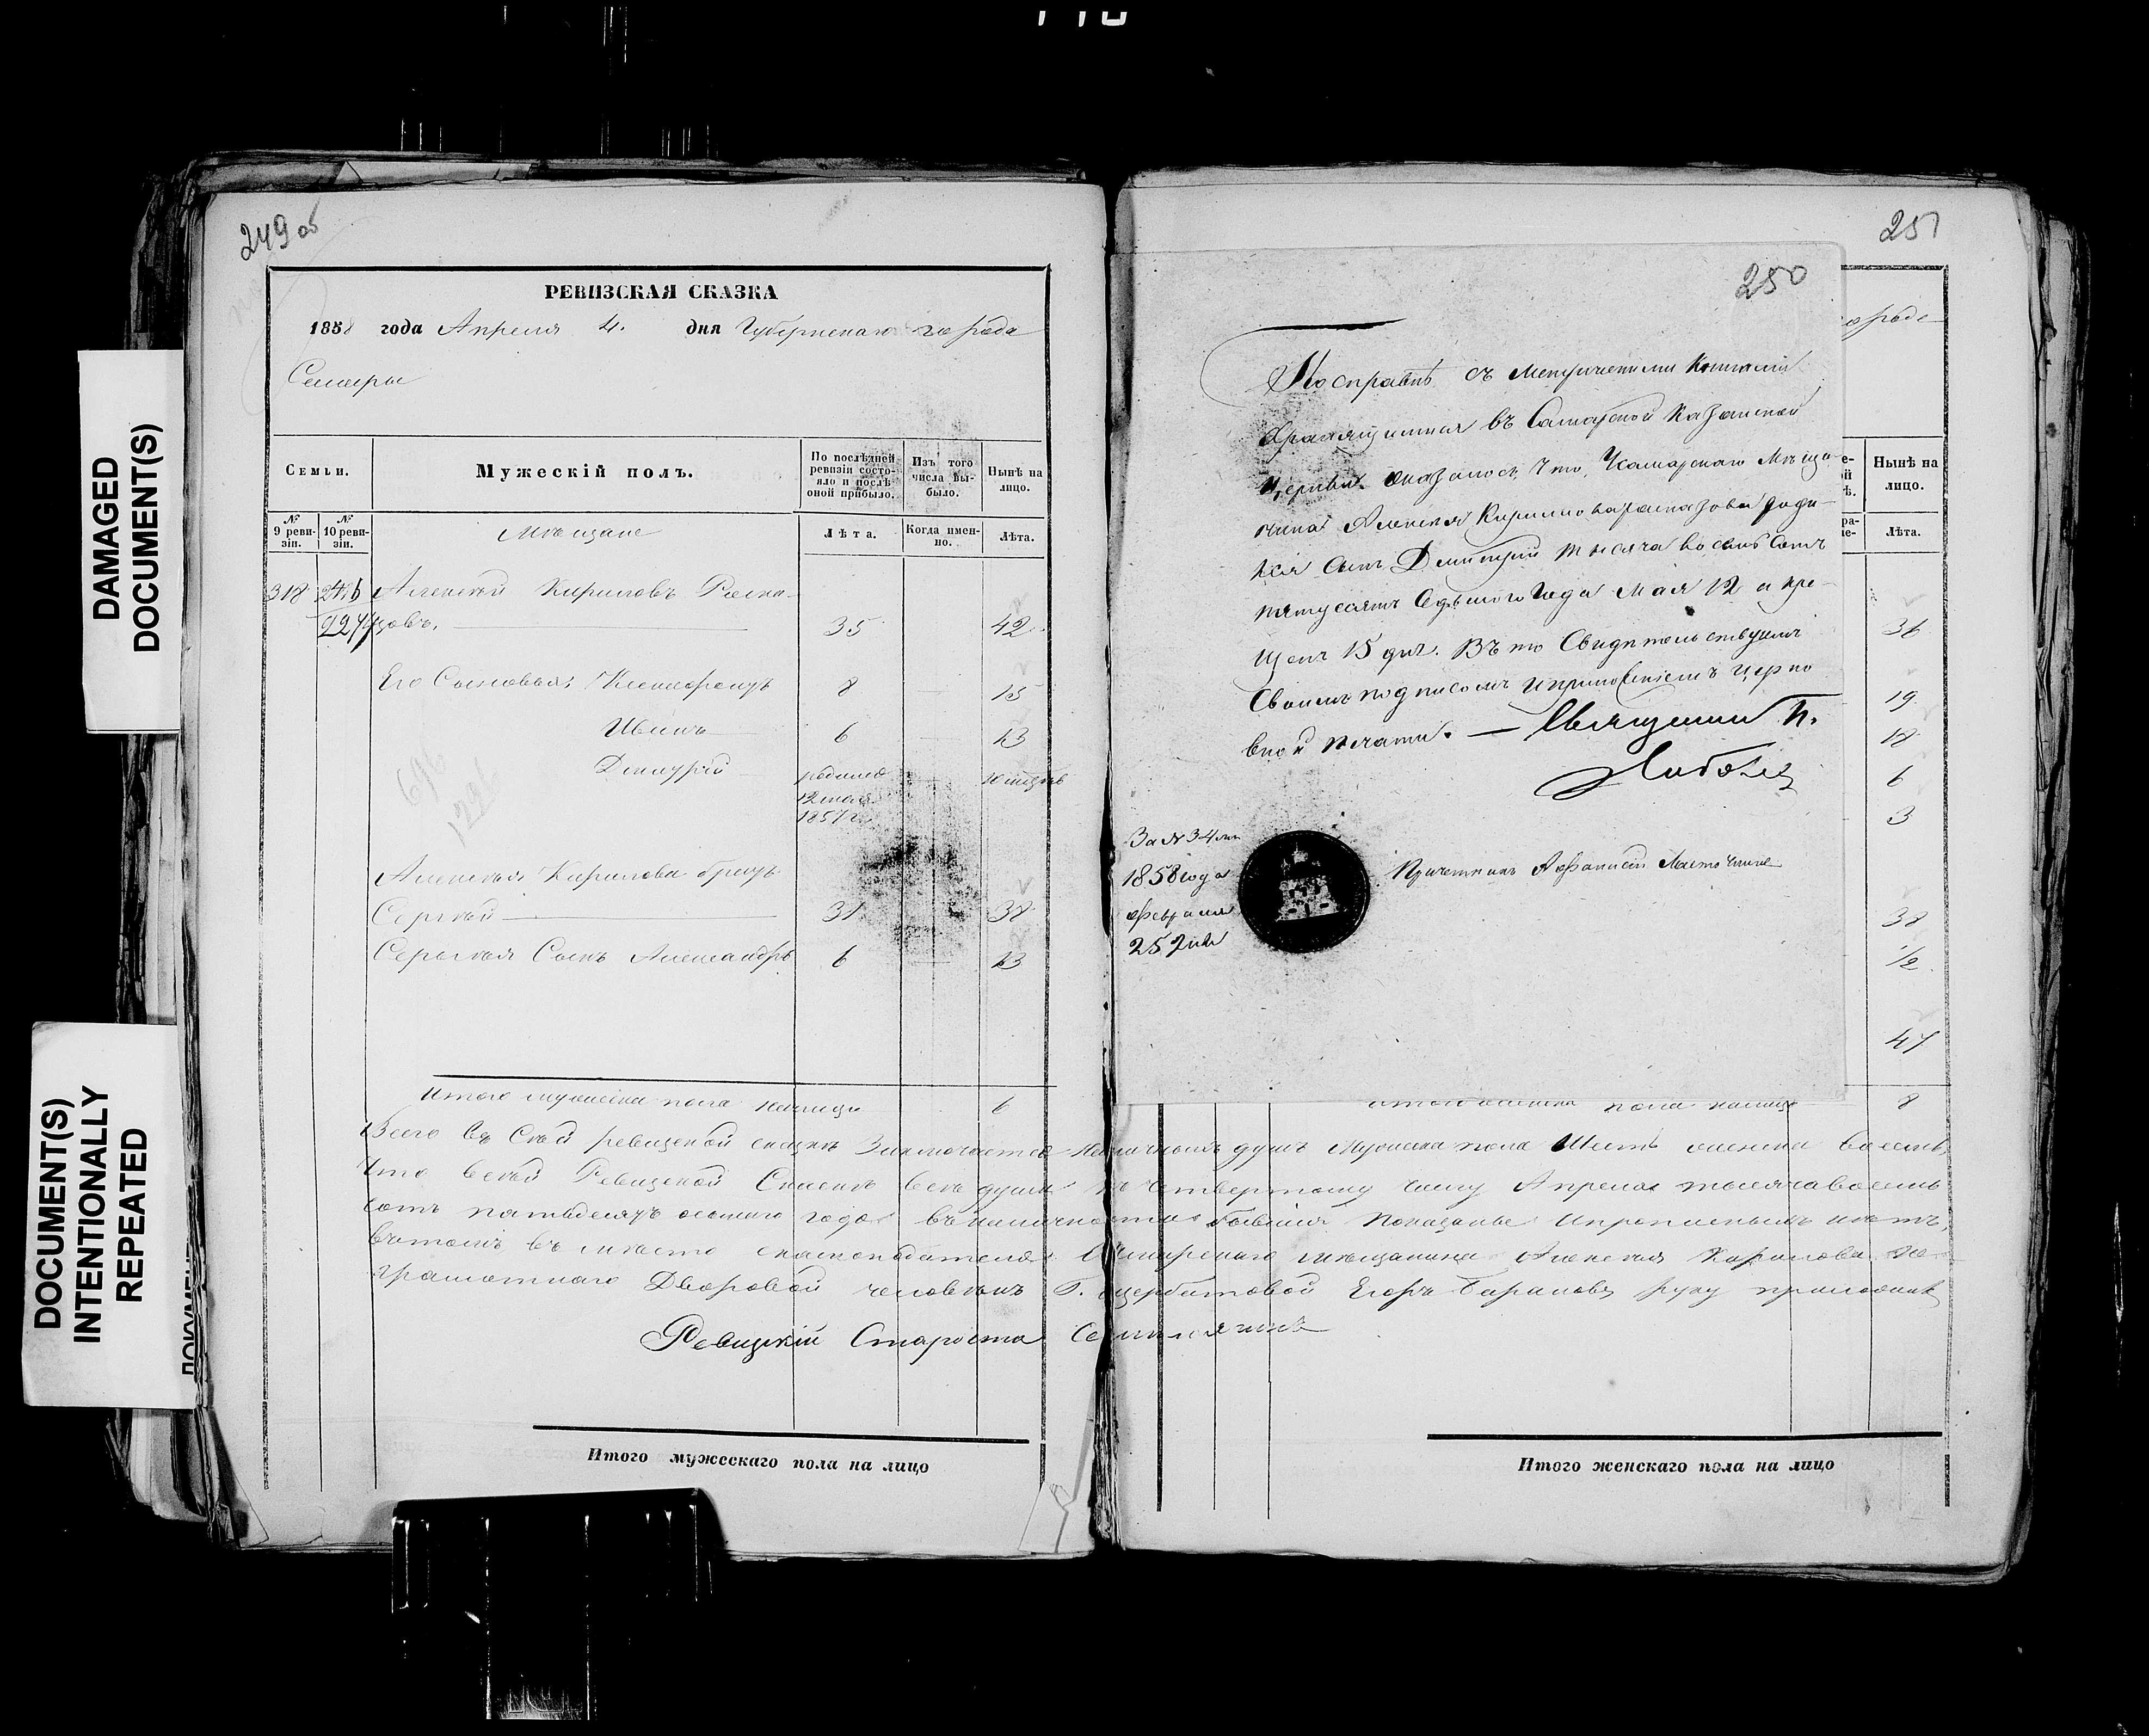 110
DAMAGED
DOCUMENT(S)
DOCUMENT(S)
INTENTIONALLY
REPEATED
249 об
РЕВИЗСКАЯ СКАЗКА
1858 года Апреля 4. дня Губернскаго города
Самары
Семьи.
Мужескій полъ.
По послѣдней ревизіи состояло и послѣ оной прибыло.
Изъ того числа выбыло.
Нынѣ на лицо.
№ 9 ревизіи.
№ 10 ревизіи.
Мѣщане
Лѣта.
Когда именно.
Лѣта.
318 Алексѣй Кириловъ Раска-
зовъ. 35 42
Его Сыновья: 8 15
Иванъ 6 13
Дмитрій родился
12 мая
1857 г.
Алексѣя Кирилова братъ
Сергѣй 31 38
Сергѣя Сынъ Александръ 6 13
Итого мужеска пола налицо 6
Всего въ Сей ревизской сказкѣ Заключается наличныхъ душъ Мужеска пола Шесть женска восемь
что в сей Ревизской Сказкѣ всѣ души къ четвертому числу Апреля тысяча восемь
сотъ пятьдесятъ осьмаго года въ наличности бывшія показаны и прописныхъ нѣтъ,
вътомъ въ мѣсто сказкоподателя Самарскаго мѣщанина Алексѣя Кирилова не
грамотнаго Дворовой человѣкъ Г. Щербатовой Егоръ Барановъ руку приложилъ
Ревизскій Староста
Итого мужескаго пола на лицо
251
250
По справкѣ съ Метрическими Книгами
хранящимися въ Самарской Казанской
Церкви Оказалось, что, Самарскаго Мѣща-
нина Алексея Кирилова Расказова роди-
лся сынъ Дмитрий тысяча восемь сотъ
пятдесятъ Седьмого Года Мая 12 а кре-
щенъ 15 дня. Въ то Свидѣтельствуемъ
Своимъ подписомъ и приложеніемъ церко
вной печати. — Священникъ П.
За № 34
1858 года
февраля
25 дня
Причетникъ
Нынѣ на лицо.
Лѣта.
36
19
18
6
3
38
1/2
47
Итого женска пола налицо 8
Итого женскаго пола на лицо